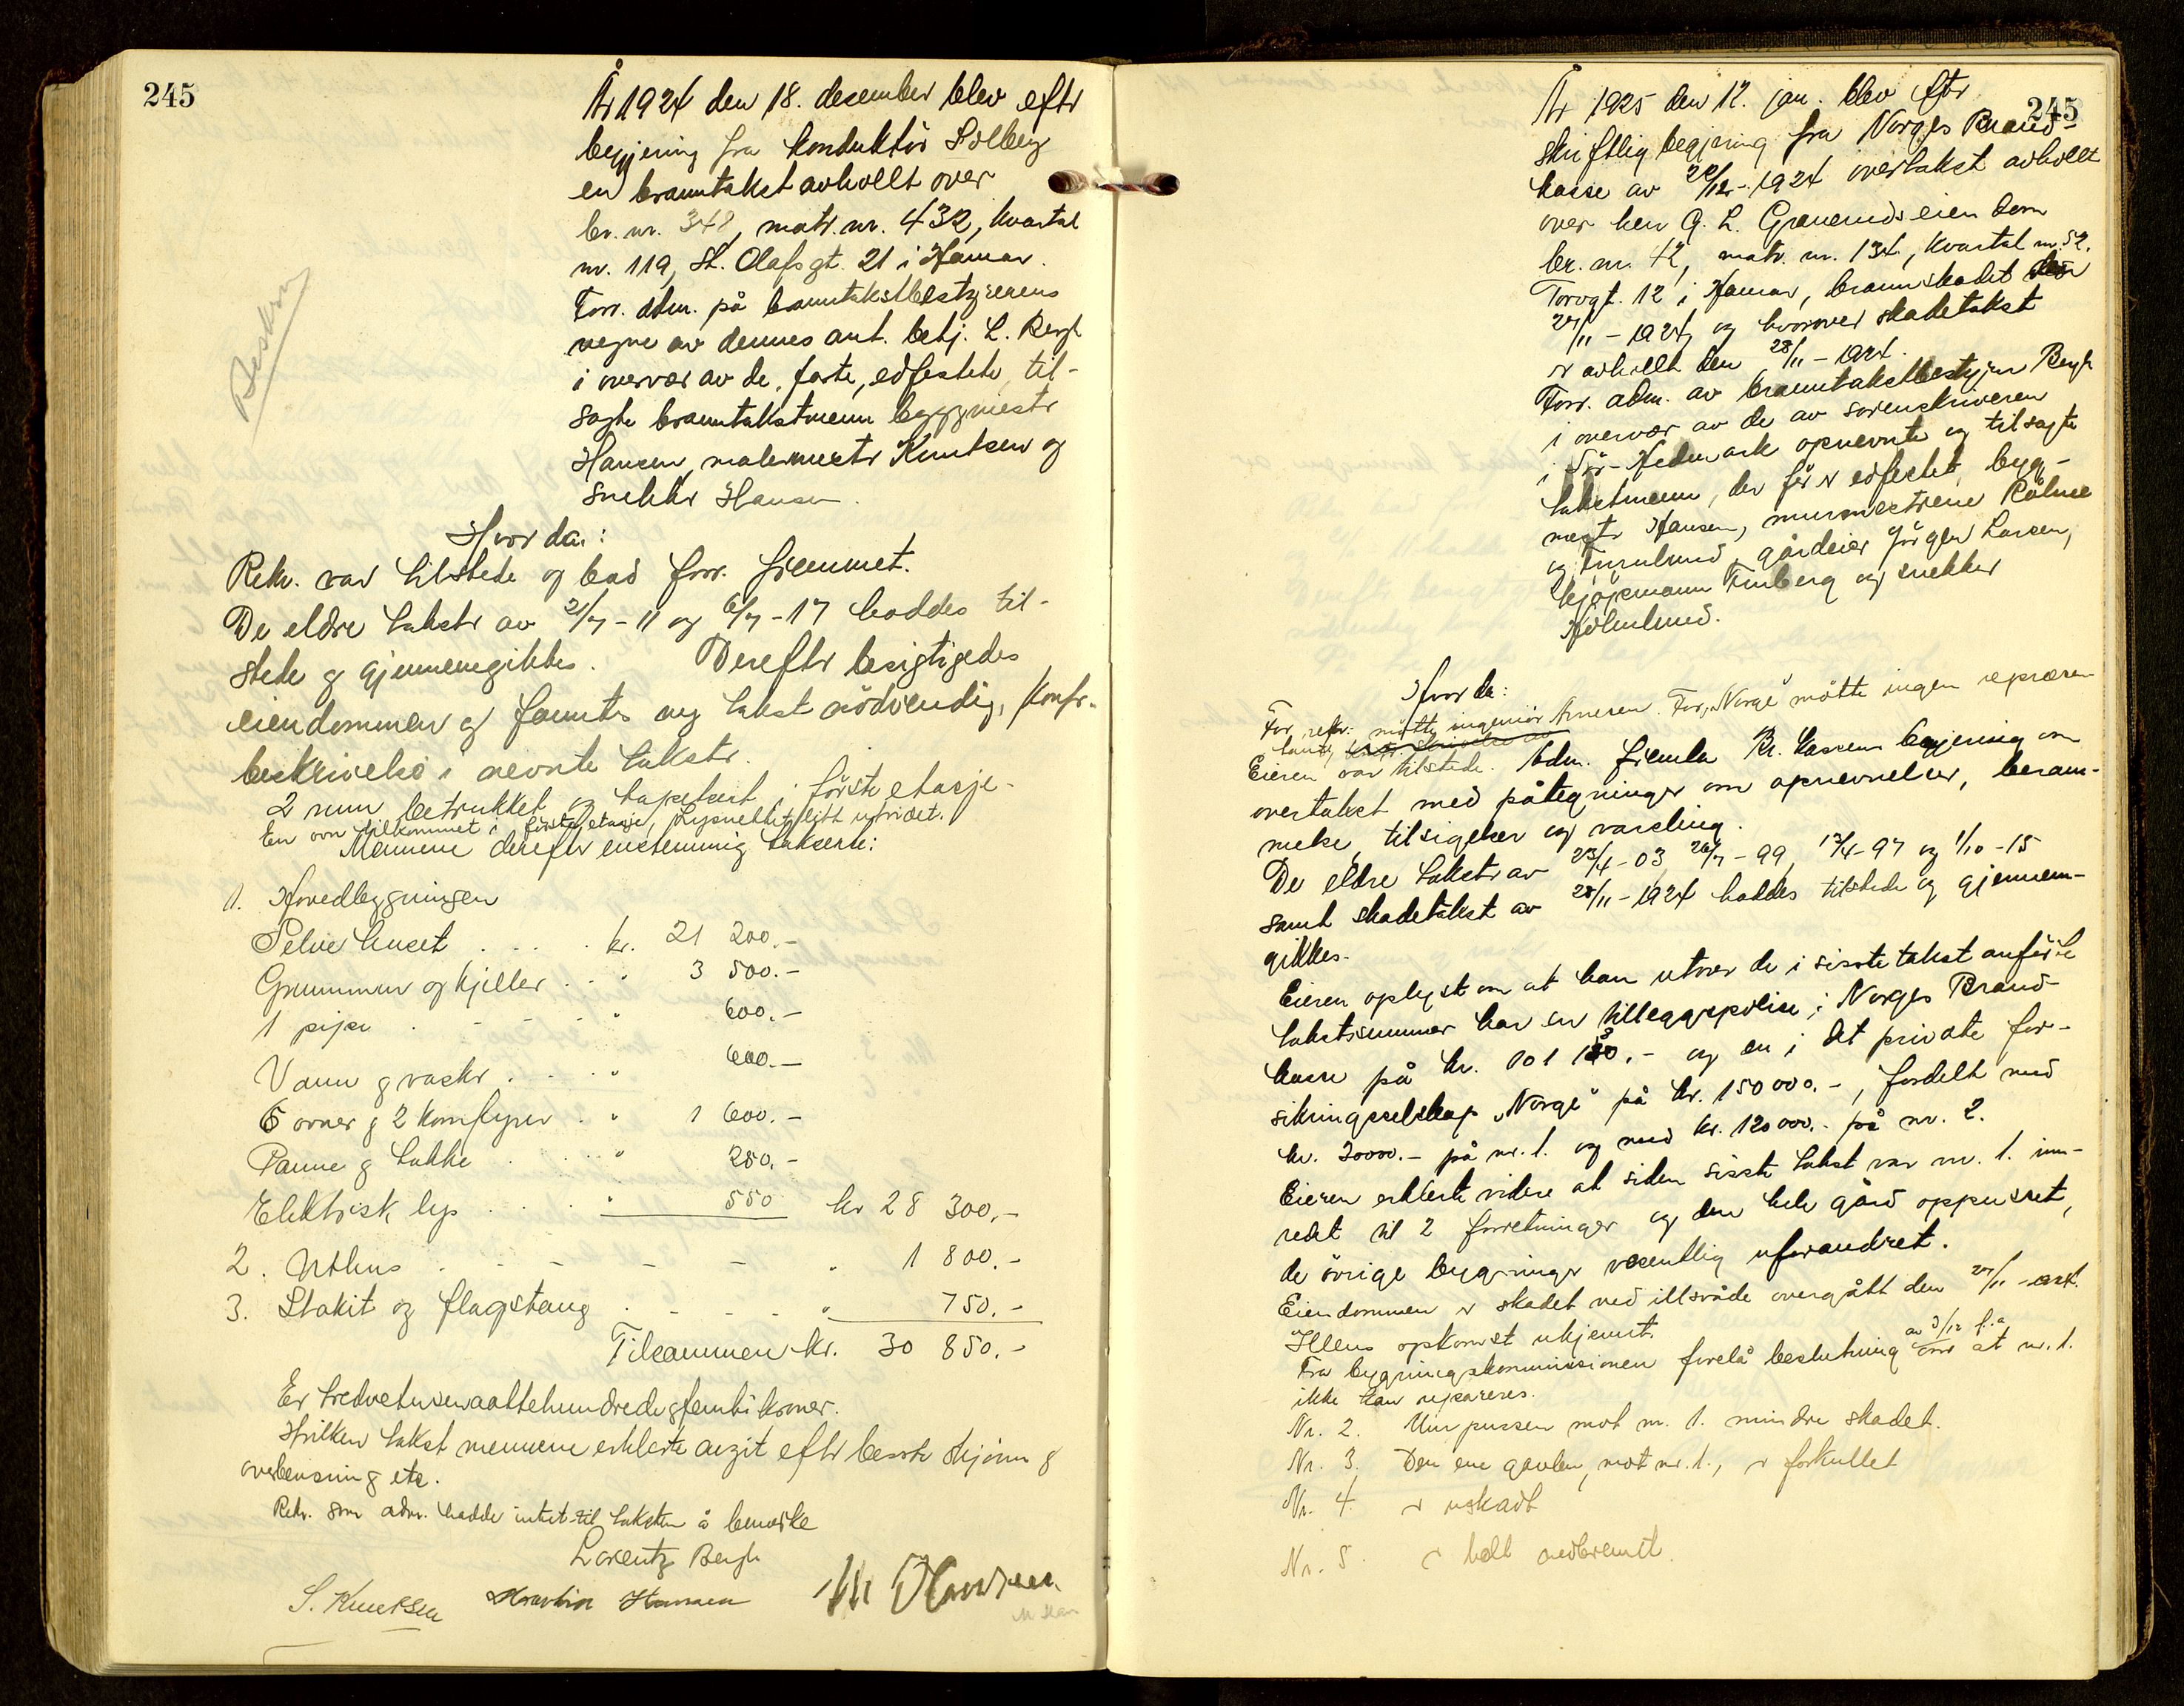 245
År 1924 den 18. desember blev eftr
begjæring fra konduktör Solberg
en branntakst avhollt over
br. nr. 348, matr. nr. 432, kvartal
nr. 119, St. Olafs gt. 21 i Hamar.
Forr. adm. på branntakstbestyrerens
vegne av dennes ant. betj. L. Bergh
i overvær av de, faste, edfestete, til-
sagte branntakstmenn byggmestr
Hansen, malermestr Knutsen og
snekkr Hansen.
Beskrev
Hvor da:
Rekv. var tilstede og bad forr. fremmet.
De eldre takstr av 21/7-11 og 6/7-17 haddes til-
stede og gjennemgikkes. Dereftr besigtigedes
eiendommen og fanntes ny takst nödvendig, konfr.
beskrivelse i nevnte takstr.
2 rum betrukket og tapetsert i förste etasje.
En ovn tilkommet i förste etasje, Lysnettet litt utvidet.
Mennene derefter enstemmig takserte:
1. Hovedbygningen
Selve huset . . . . kr. 21 200.-
Grunnmur og kjeller . . . " 3 500.-
1 pipe . - - - - " 600.-
Vann og vaskr . . . . " 600.-
6 ovner og 2 komfyrer . . " 1 600.-
Panne og takke . . . . " 250.-
Elektrisk lys . . . . " 550 kr 28 300.-
2. Uthus . - - - - - " 1 800.-
3. Stakit og flagstang . - - - . " 750.-
Tilsammen kr. 30 850.-
Er tredvetusenaattehundredeogfemti kroner.
Hvilken takst mennene erklærte avgit eftr beste skjönn og
overbevisning etc.
Rekv. som adm. hadde intet til taksten å bemerke
Lorentz Bergh
S. Knutsen Hansen M Hansen
245
År 1925 den 12. jan. blev eftr
skriftlig begjæring fra Norges Brand-
kasse av 22/12-1924 overtakst avhollt
over herr G. L. Graveruds eiendom
br. nr. 42, matr. nr. 134, kvartal nr. 52.
Torvgt. 12 i Hamar, brannskadet den
27/11-1924, og hvorover skadetakst
er avhollt den 28/11-1924.
Forr. adm. av branntakstbestyrer Bergh
i overvær av de av sorenskriveren
i Sör-Hedmark opnevnte og tilsagte
takstmenn, der för er edfestet, byg-
mestr Hansen, murmestrene Röhne
og Furulund, gårdeier Jörgen Larsen,
kjöpmann Finberg og snekker
Holmlund.
Hvor da:
For rekv. mötte ingeniör Arnesen. For "Norge" mötte ingen repræsen-
tant,
Eieren var tilstede. Adm. fremla Br. kassens begjæring om
overtakst med påtegninger om opnevnelser, beram-
melse, tilsigelser og varsling.
De eldre takstr av 23/4-03, 26/7-99, 13/4-97 og 1/10-15
samt skadetakst av 28/11-1924 haddes tilstede og gjennem-
gikkes.
Eieren oplyste om at han utover de i sisste takst anförte
takstsummer har en tilleggspolise i Norges Brand-
kasse på kr. 101 130.- og en i det private for-
sikringsselskap "Norge" på kr. 150 000.-, fordelt med
kr. 30000.- på nr. 1. og med kr. 120 000.- på nr. 2.
Eieren erklærte videre at siden sisste takst var nr. 1. inn-
redet til 2 forretninger og den hele gård oppusset,
de övrige bygninger vesentlig uforandret.
Eiendommen er skadet ved illsvåde overgått den 27/11-1924.
Illens opkomst ukjennt.
Fra bygningskommissionen forelå beslutning av 3/12 f.a. om at nr. 1.
ikke kan repareres.
Nr. 2. Murpussen mot nr. 1. mindre skadet.
Nr. 3. Den ene gavlen, mot nr. 1., er forkullet
Nr. 4. er uskadt
Nr. 5. er helt nedbrennt.